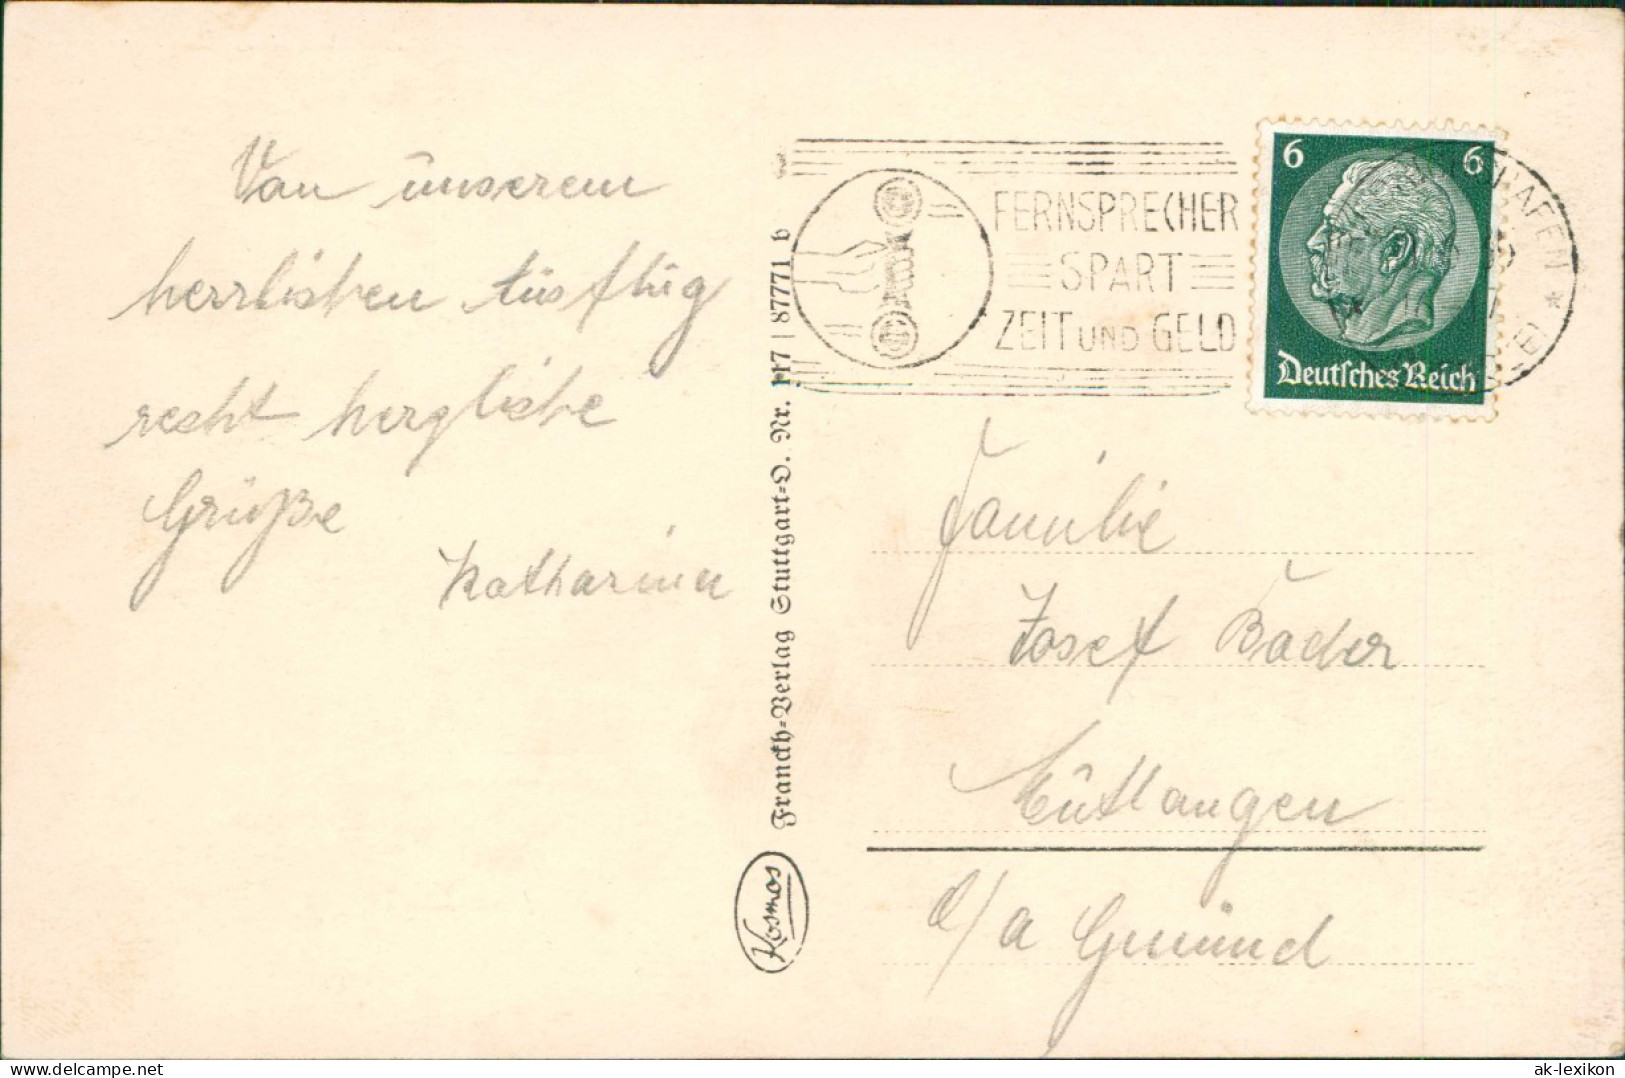 Von unserem
herrlichen Ausflug
recht herzliche
Grüße
Katharina
Franckh-Verlag Stuttgart-O. Nr. 117 | 87771 b
Kosmos
FERNSPRECHER
SPART
ZEIT UND GELD
6 6
Deutsches Reich
HAFEN *
Familie
Josef Bader
Mutlangen
b/a Gmünd
ak-lexikon